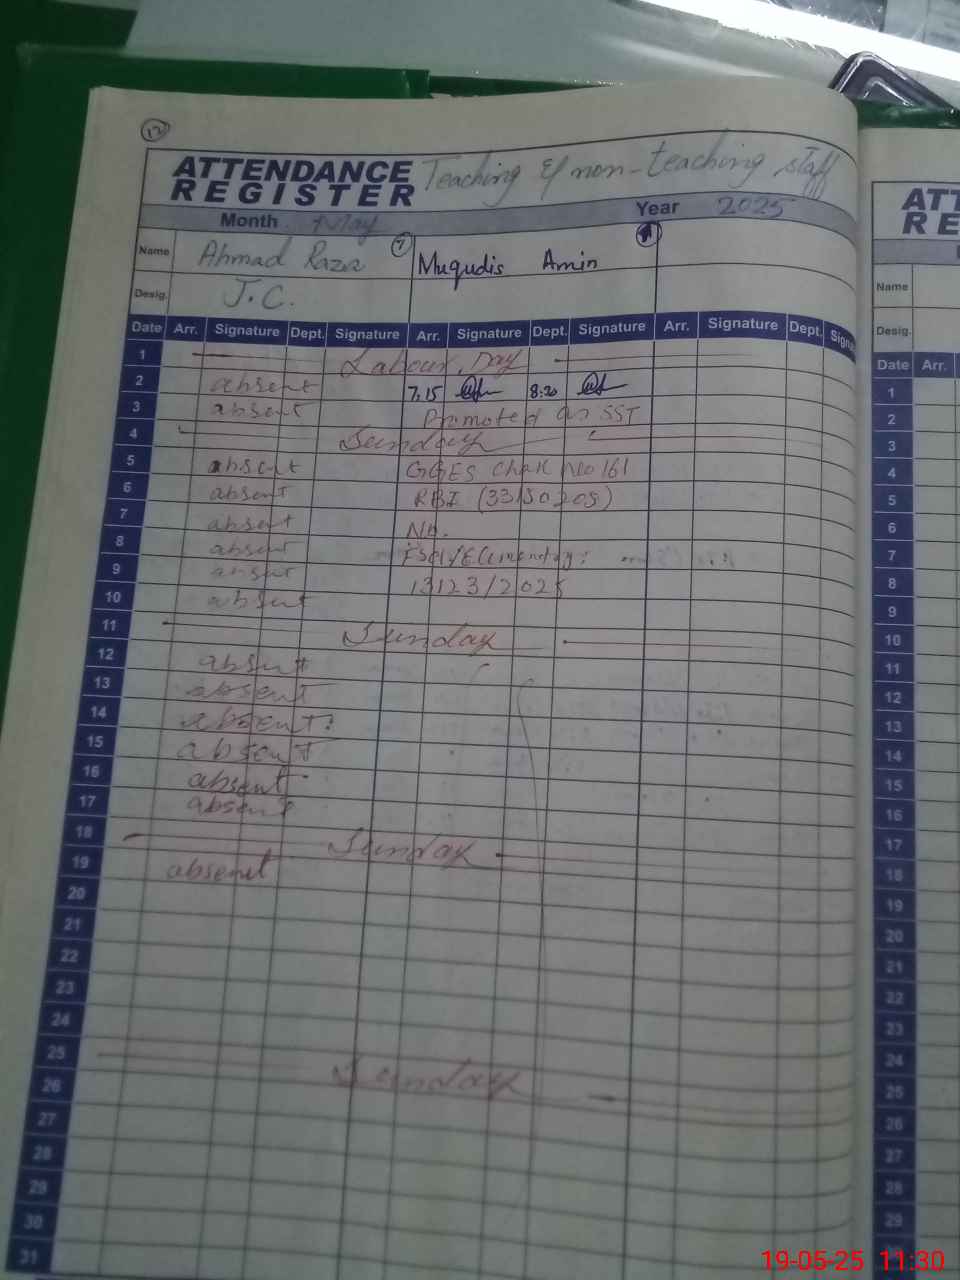 12
ATTENDANCE REGISTER Teaching & non-teaching staff
Month May Year 2025
Name Ahmad Raza 7 Muqudis Amin
Desig. J.C.
Date Arr. Signature Dept. Signature Arr. Signature Dept. Signature Arr. Signature Dept. Signa
1 Labour Day
2 absent 7:15 8:20
3 absent Promoted as SST
4 Sunday
5 absent GGES Chak No 161
6 absent RBI (33130205)
7 absent No.
8 absent
9 absent 13123/2025
10 absent
11 Sunday
12 absent
13 absent
14 absent
15 absent
16 absent
17 absent
18 Sunday
19 absent
20
21
22
23
24
25 Sunday
26
27
28
29
30
31
ATT
RE
Name
Desig.
Date Arr.
1
2
3
4
5
6
7
8
9
10
11
12
13
14
15
16
17
18
19
20
21
22
23
24
25
26
27
28
29
19-05-25 11:30